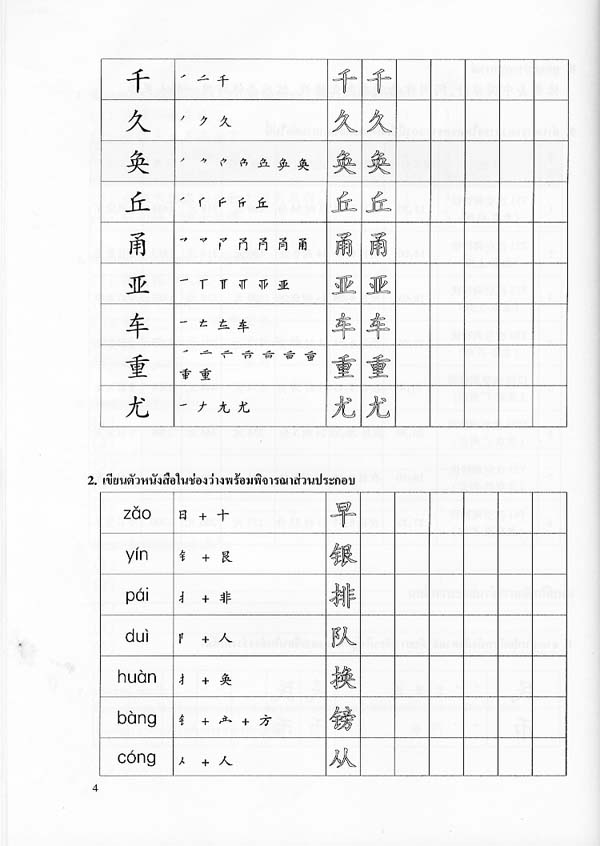 千 ㇒ 二 千 千 千
久 ㇒ ク 久 久 久
奂 奂 奂 奂
丘 丘 丘 丘
甬 甬 甬 甬
亚 一 丅 亚 亚 亚
车 一 车 车 车
重 重
重 重 重
尤 一 ナ 九 尤 尤 尤
2. เขียนตัวหนังสือในช่องว่างพร้อมพิจารณาส่วนประกอบ
zǎo 日 + 十 早
yín 钅 + 艮 银
pái 扌 + 非 排
duì 阝 + 人 队
huàn 扌 + 奂 换
bàng 钅 + 立 + 方 镑
cóng 人 + 人 从
4